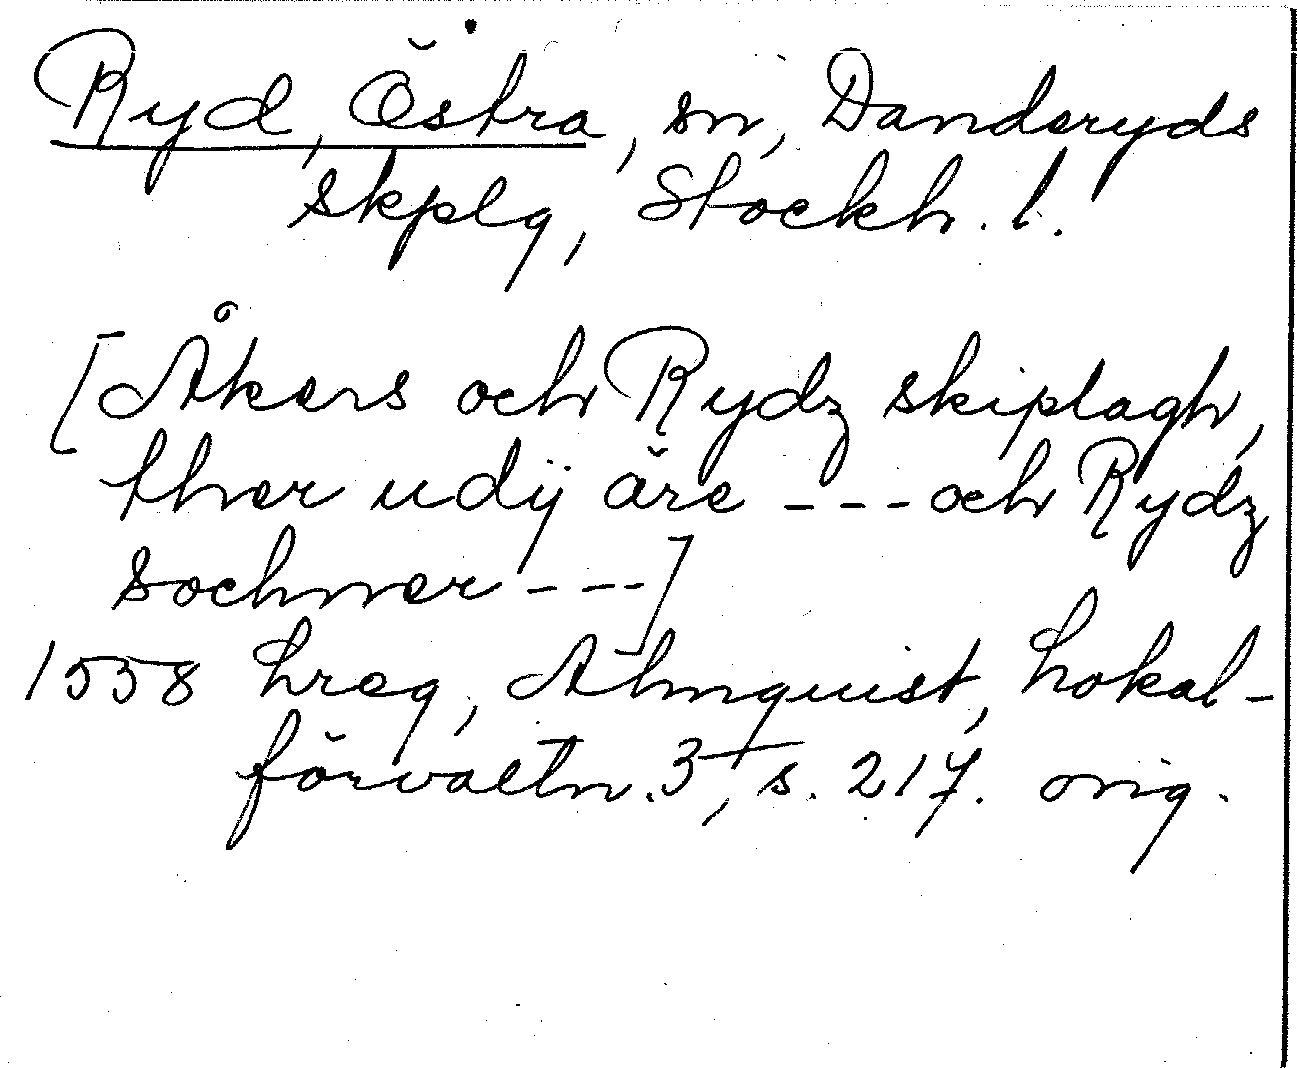 Ryd, Östra, sn, Danderyds
skplg, Stockh. l.
[Åkers och Rydz skiplagh,
ther udij äre --- och Rydz
sochner ---]
1558 hreg, Almquist, Lokal-
förvaltn. 3, s. 217. orig.